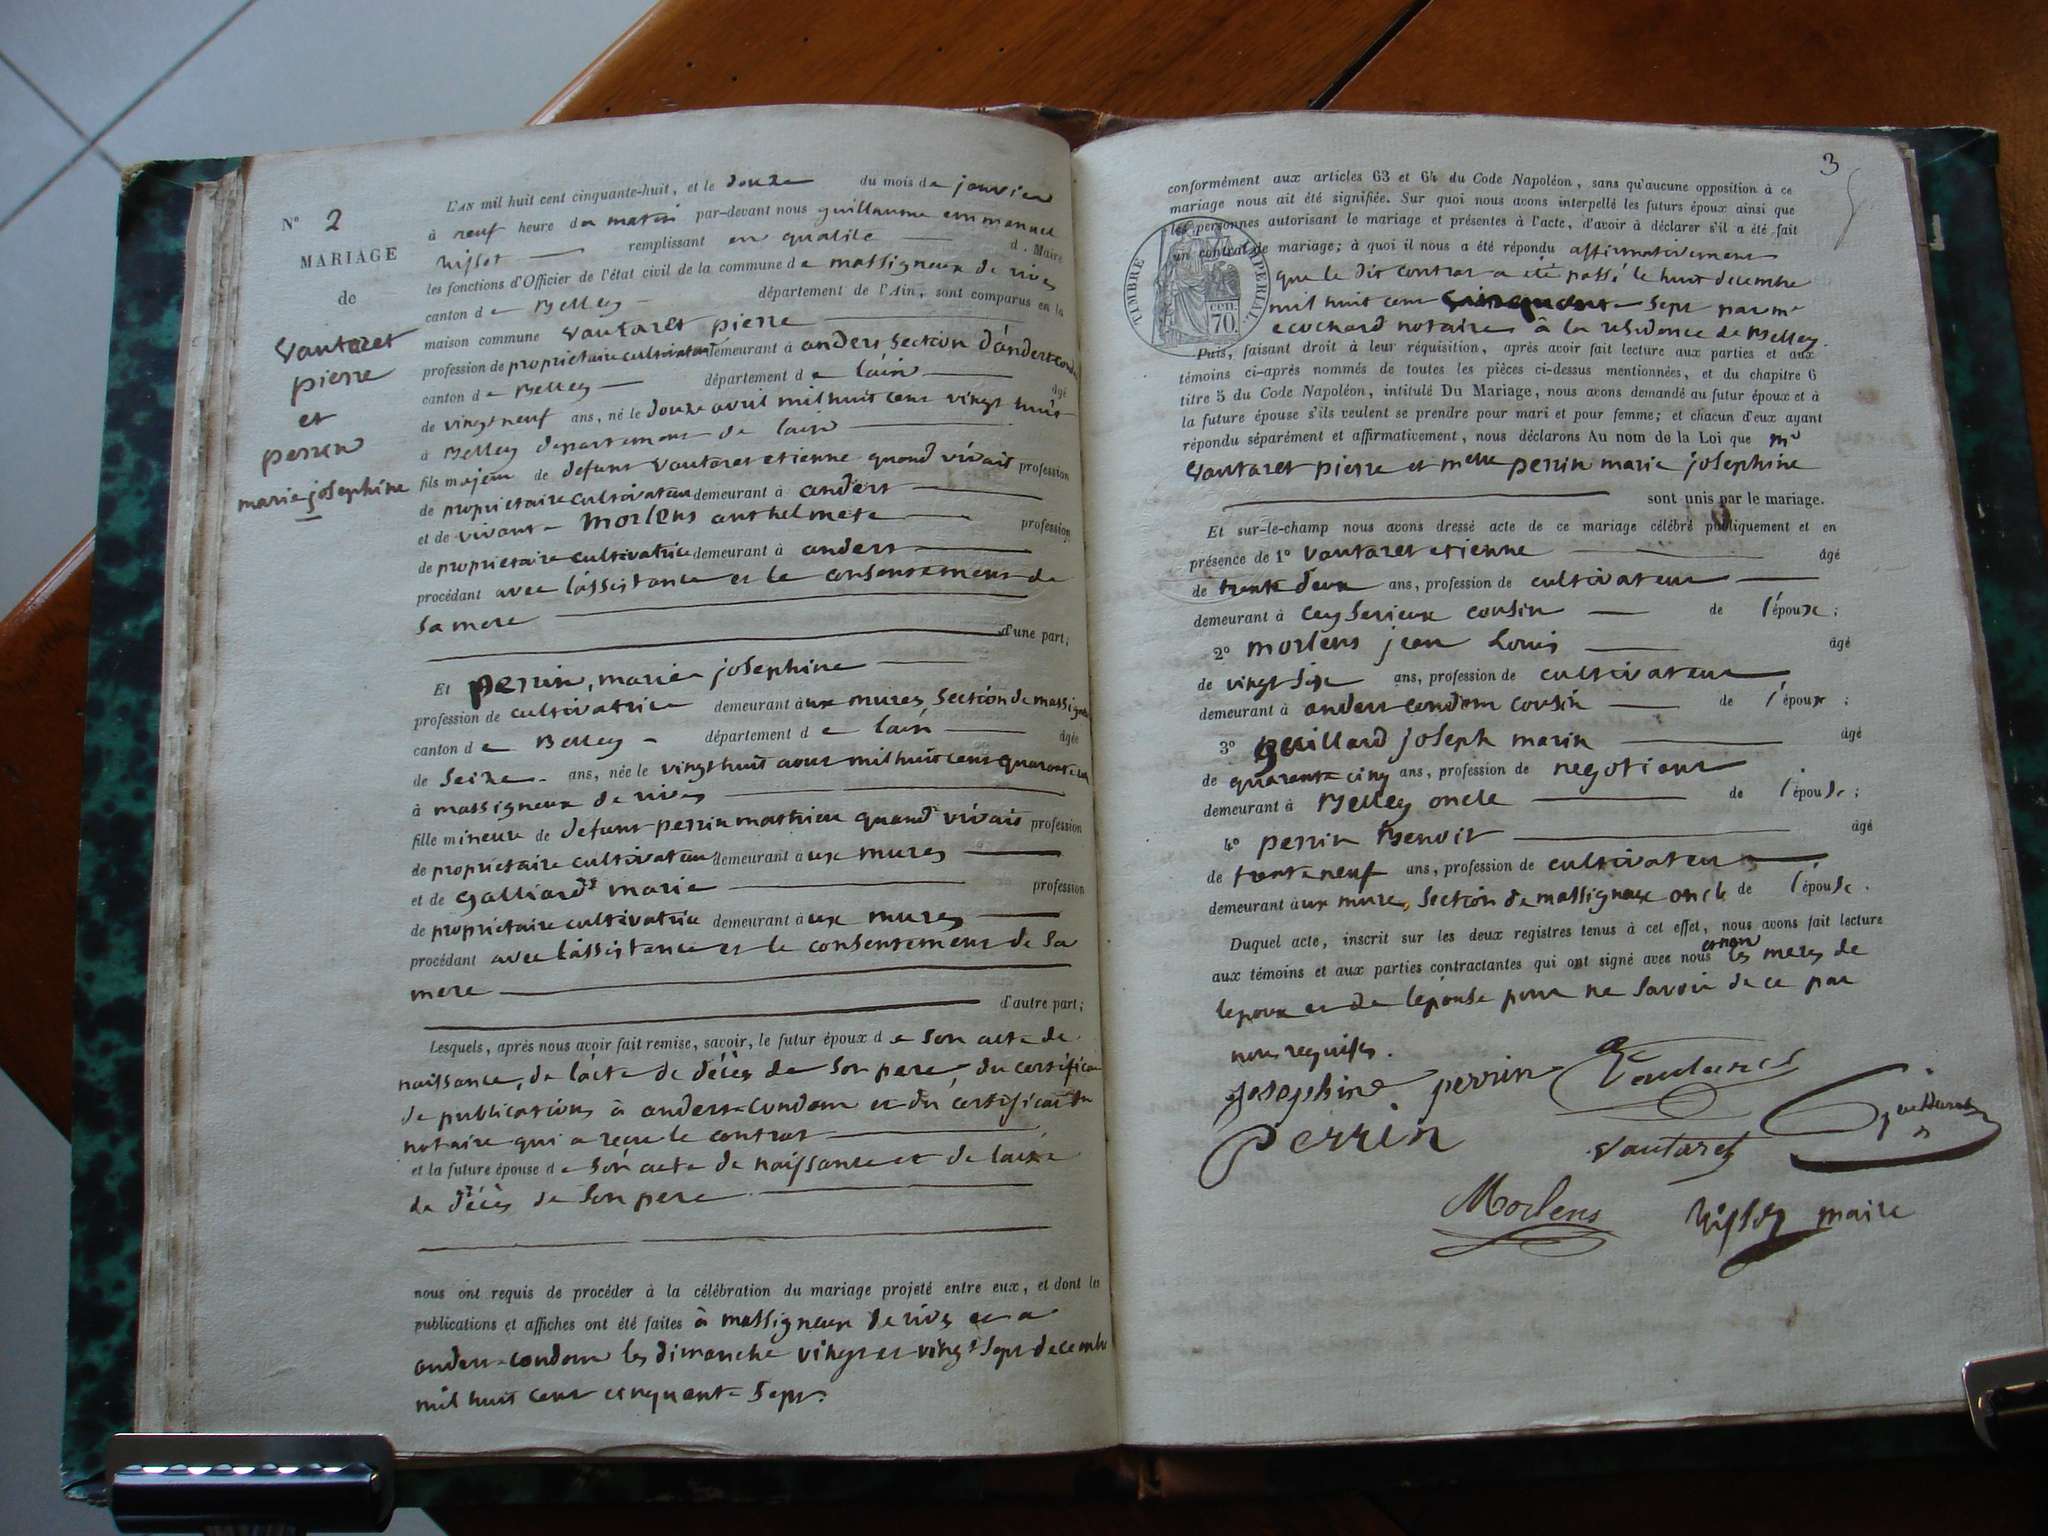 N° 2
MARIAGE
de
Vautaret
pierre
et
perrin
marie josephine
L'AN mil huit cent cinquante-huit, et le douze du mois de janvier
à neuf heure du matin par-devant nous guillaume emmanuel
remplissant en qualité d. Maire
les fonctions d'Officier de l'état civil de la commune de massigneux de rives
canton de Belley département de l'Ain, sont comparus en la
maison commune Vautaret pierre
profession de propriétaire cultivateur demeurant à anders section d'andert condon
canton de Belley département de lain âgé
de vingt neuf ans, né le douze avril mil huit cent vingt huit
à Belley departement de lain
fils majeur de defunt Vautaret etienne quand vivait profession
de propriétaire cultivateur demeurant à andert
et de vivante morlens anthelmete profession
de propriétaire cultivatrice demeurant à andert
procédant avec l'assistance et le consentement de
sa mere
d'une part;
Et perrin, marie josephine
profession de cultivatrice demeurant aux mures, section de massigneux
canton de Belley département de lain âgée
de seize ans, née le vingt huit aout mil huit cent quarante un
à massigneux de rives
fille mineure de defunt perrin mathieu quand vivait profession
de propriétaire cultivateur demeurant aux mures
et de galliard marie profession
de propriétaire cultivatrice demeurant aux mures
procédant avec l'assistance et le consentement de sa
mere
d'autre part;
Lesquels, après nous avoir fait remise, savoir, le futur époux de son acte de
naissance, de l'acte de décès de son pere, du certificat
de publications à andert-condon et du certificat du
notaire qui a reçu le contrat
et la future épouse de son acte de naissance et de lacte
de décès de son pere
nous ont requis de procéder à la célébration du mariage projeté entre eux, et dont les
publications et affiches ont été faites à massigneux de rives et a
andert-condon les dimanche vingt et vingt sept decembre
mil huit cent cinquante sept.
3
conformément aux articles 63 et 64 du Code Napoléon, sans qu'aucune opposition à ce
mariage nous ait été signifiée. Sur quoi nous avons interpellé les futurs époux ainsi que
les personnes autorisant le mariage et présentes à l'acte, d'avoir à déclarer s'il a été fait
un contrat de mariage; à quoi il nous a été répondu affirmativement
que le dit contrat a été passé le huit decembre
mil huit cent cinquante sept par me
ecochard notaire à la residence de Belley.
TIMBRE IMPERIAL
70 cen
Puis, faisant droit à leur réquisition, après avoir fait lecture aux parties et aux
témoins ci-après nommés de toutes les pièces ci-dessus mentionnées, et du chapitre 6
titre 5 du Code Napoléon, intitulé Du Mariage, nous avons demandé au futur époux et à
la future épouse s'ils veulent se prendre pour mari et pour femme; et chacun d'eux ayant
répondu séparément et affirmativement, nous déclarons Au nom de la Loi que mr
Vautaret pierre et melle perrin marie josephine
sont unis par le mariage.
Et sur-le-champ nous avons dressé acte de ce mariage célébré publiquement et en
présence de 1° Vautaret etienne âgé
de trente deux ans, profession de cultivateur
demeurant à ceyserieux cousin de l'époux;
2° morlens jean Louis âgé
de vingt six ans, profession de cultivateur
demeurant à andert condom cousin de l'époux;
3° guillard joseph marin âgé
de quarante cinq ans, profession de negotient
demeurant à Belley oncle de l'épouse;
4° perrin Benoit âgé
de trente neuf ans, profession de cultivateur
demeurant aux mure, section de massigneux oncle de l'épouse.
Duquel acte, inscrit sur les deux registres tenus à cet effet, nous avons fait lecture
aux témoins et aux parties contractantes qui ont signé avec nous et non les meres de
lepoux et de lepouse pour ne savoir de ce par
nous requises.
Josephine perrin Vautaret
perrin Vautaret
Morlens maire